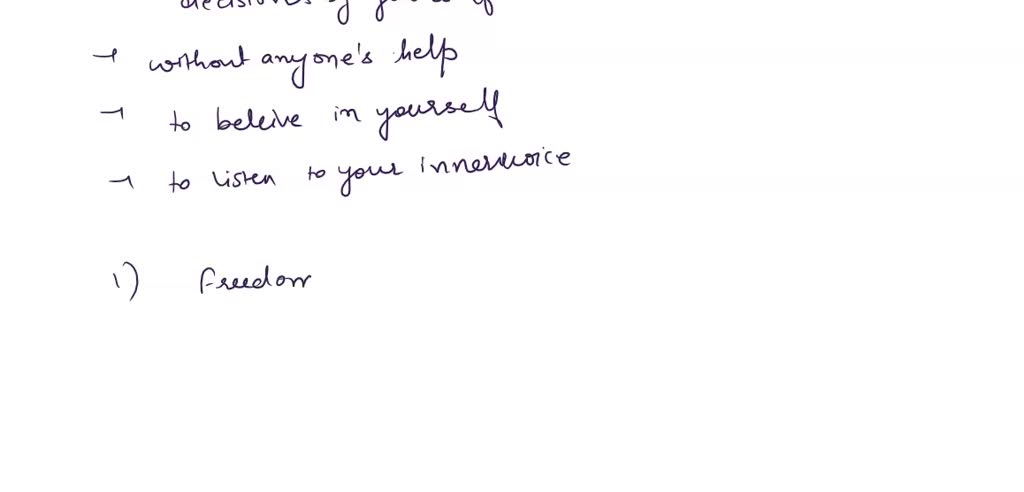 decisions by yourself
→ without anyone's help
→ to beleive in yourself
→ to listen to your innervoice
1) freedom